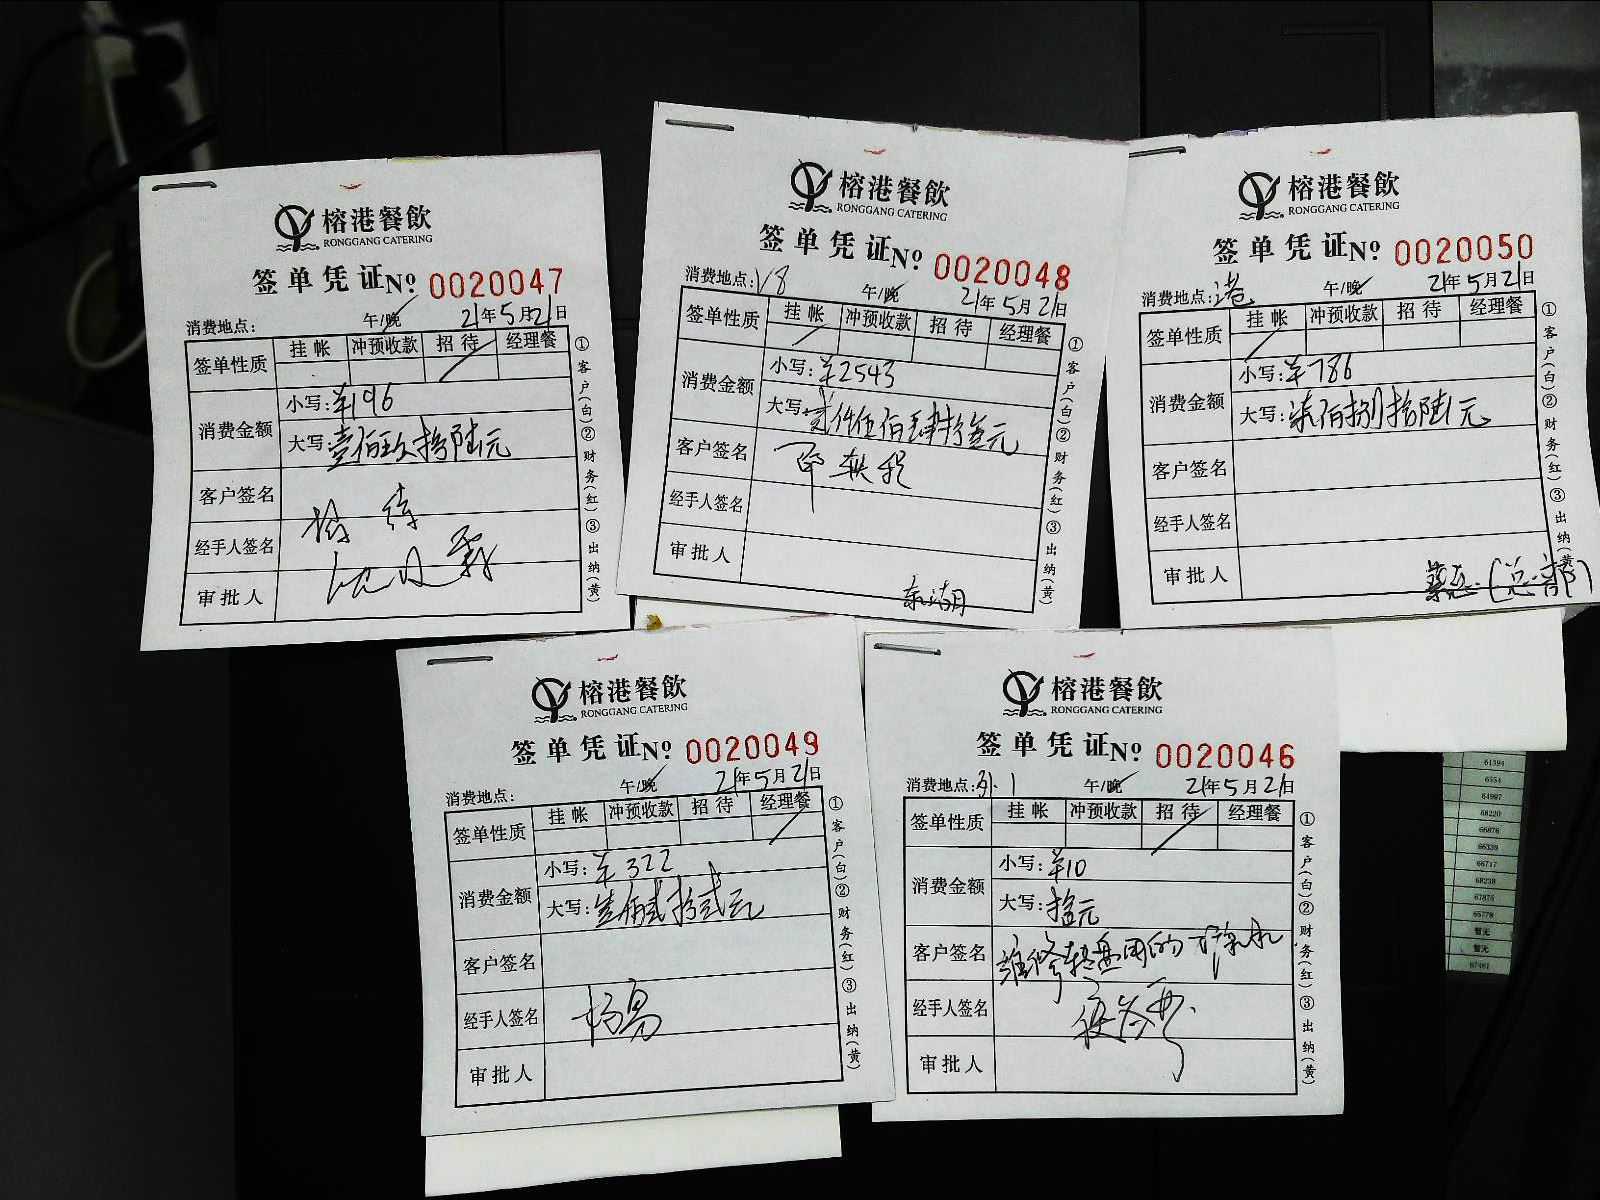 榕港餐飲
RONGGANG CATERING
签单凭证 Nº 0020047
消费地点: 午/晚 21年5月21日
签单性质 挂帐 冲预收款 招待 经理餐
消费金额 小写:¥196
大写:壹佰玖拾陆元
客户签名
经手人签名
审批人
①客户(白)②财务(红)③出纳(黄)
榕港餐飲
RONGGANG CATERING
签单凭证 Nº 0020048
消费地点:V8 午/晚 21年5月21日
签单性质 挂帐 冲预收款 招待 经理餐
消费金额 小写:¥2543
大写:贰仟伍佰肆拾叁元
客户签名
经手人签名
审批人
①客户(白)②财务(红)③出纳(黄)
榕港餐飲
RONGGANG CATERING
签单凭证 Nº 0020050
消费地点:港 午/晚 21年5月21日
签单性质 挂帐 冲预收款 招待 经理餐
消费金额 小写:¥786
大写:柒佰捌拾陆元
客户签名
经手人签名
审批人 蔡总(总部)
①客户(白)②财务(红)③出纳(黄)
榕港餐飲
RONGGANG CATERING
签单凭证 Nº 0020049
消费地点: 午/晚 21年5月21日
签单性质 挂帐 冲预收款 招待 经理餐
消费金额 小写:¥322
大写:叁佰贰拾贰元
客户签名
经手人签名 杨易
审批人
①客户(白)②财务(红)③出纳(黄)
榕港餐飲
RONGGANG CATERING
签单凭证 Nº 0020046
消费地点: 午/晚 21年5月21日
签单性质 挂帐 冲预收款 招待 经理餐
消费金额 小写:¥10
大写:拾元
客户签名 维修转盘用的
经手人签名
审批人
①客户(白)②财务(红)③出纳(黄)
61394
6354
64997
68220
66876
66339
66717
68238
67876
65778
暂无
暂无
67461